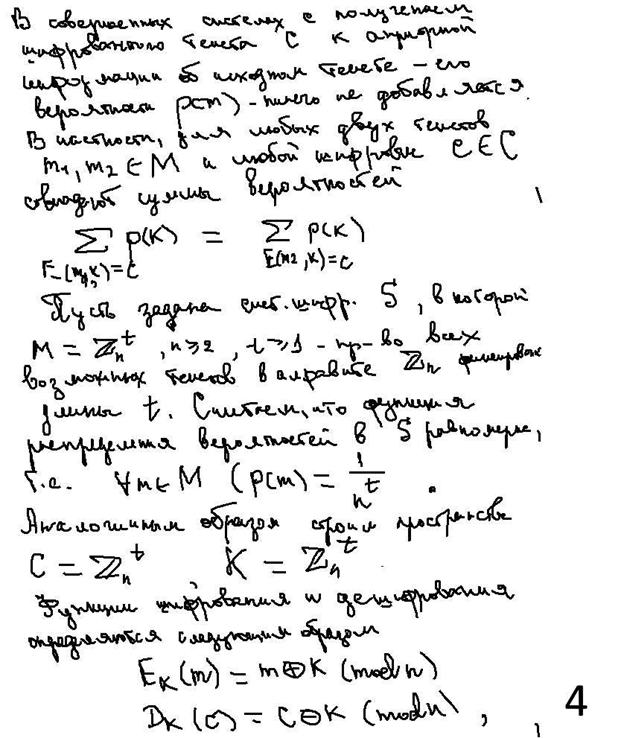 В совершенных системах с получением
шифрованного текста C к априорной
информации об исходном тексте – его
вероятности p(m) – ничего не добавляется.
В частности, для любых двух текстов
m₁, m₂ ∈ M и любой шифровке c ∈ C
совпадают суммы вероятностей
∑ p(K) = ∑ p(K)
E(m₁,K)=C E(m₂,K)=C
Пусть задана сист. шифр. S, в которой
M = ℤₙᵗ, n≥2, t≥1 – пр-во всех
возможных текстов в алфавите ℤₙ
длины t. Считаем, что функция
распределения вероятностей в S равномерна,
т.е. ∀m∈M (p(m) = 1/nᵗ.
Аналогичным образом строим пространства
C = ℤₙᵗ K = ℤₙᵗ.
Функции шифрования и дешифрования
определяются следующим образом
E_K(m) = m⊕K (mod n)
D_K(c) = C⊖K (mod n),
4